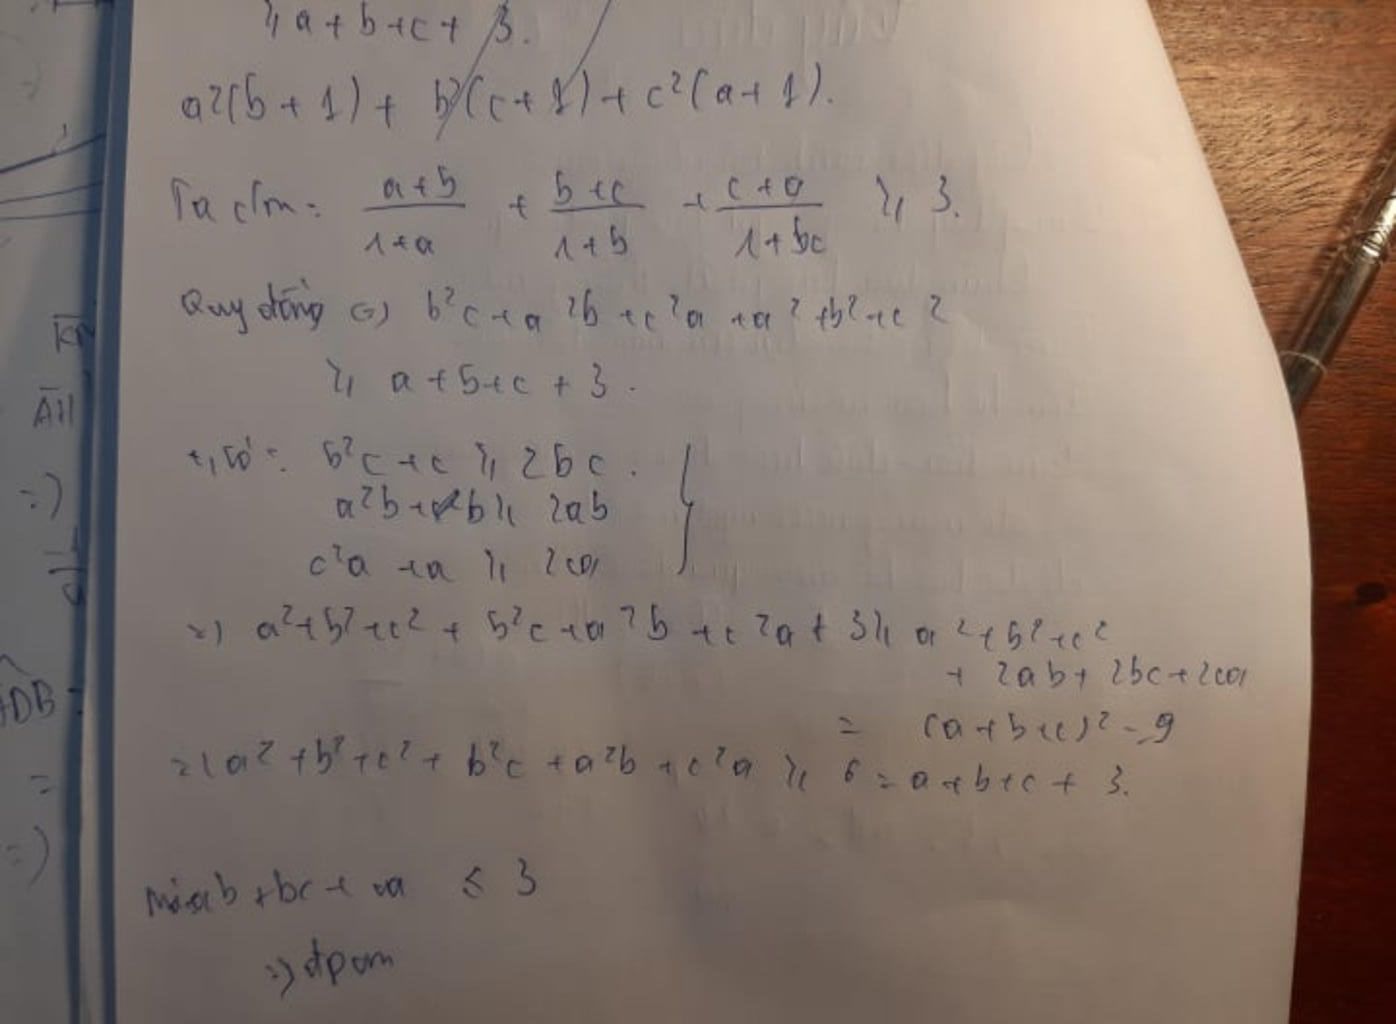 ≥ a + b + c + 3.
a²(b + 1) + b²(c + 1) + c²(a + 1).
Ta c/m: (a+b)/(1+a) + (b+c)/(1+b) + (c+a)/(1+bc) ≥ 3.
Quy đồng (=) b²c + a²b + c²a + a² + b² + c²
≥ a + b + c + 3.
có: b²c + c ≥ 2bc.
a²b + b ≥ 2ab
c²a + a ≥ 2ca
=) a² + b² + c² + b²c + a²b + c²a + 3 ≥ a² + b² + c²
+ 2ab + 2bc + 2ca
= (a+b+c)² = 9
=) a² + b² + c² + b²c + a²b + c²a ≥ 6 = a + b + c + 3.
mà ab + bc + ca ≤ 3
=) đpcm
KM
AH
=)
DB
=
=)